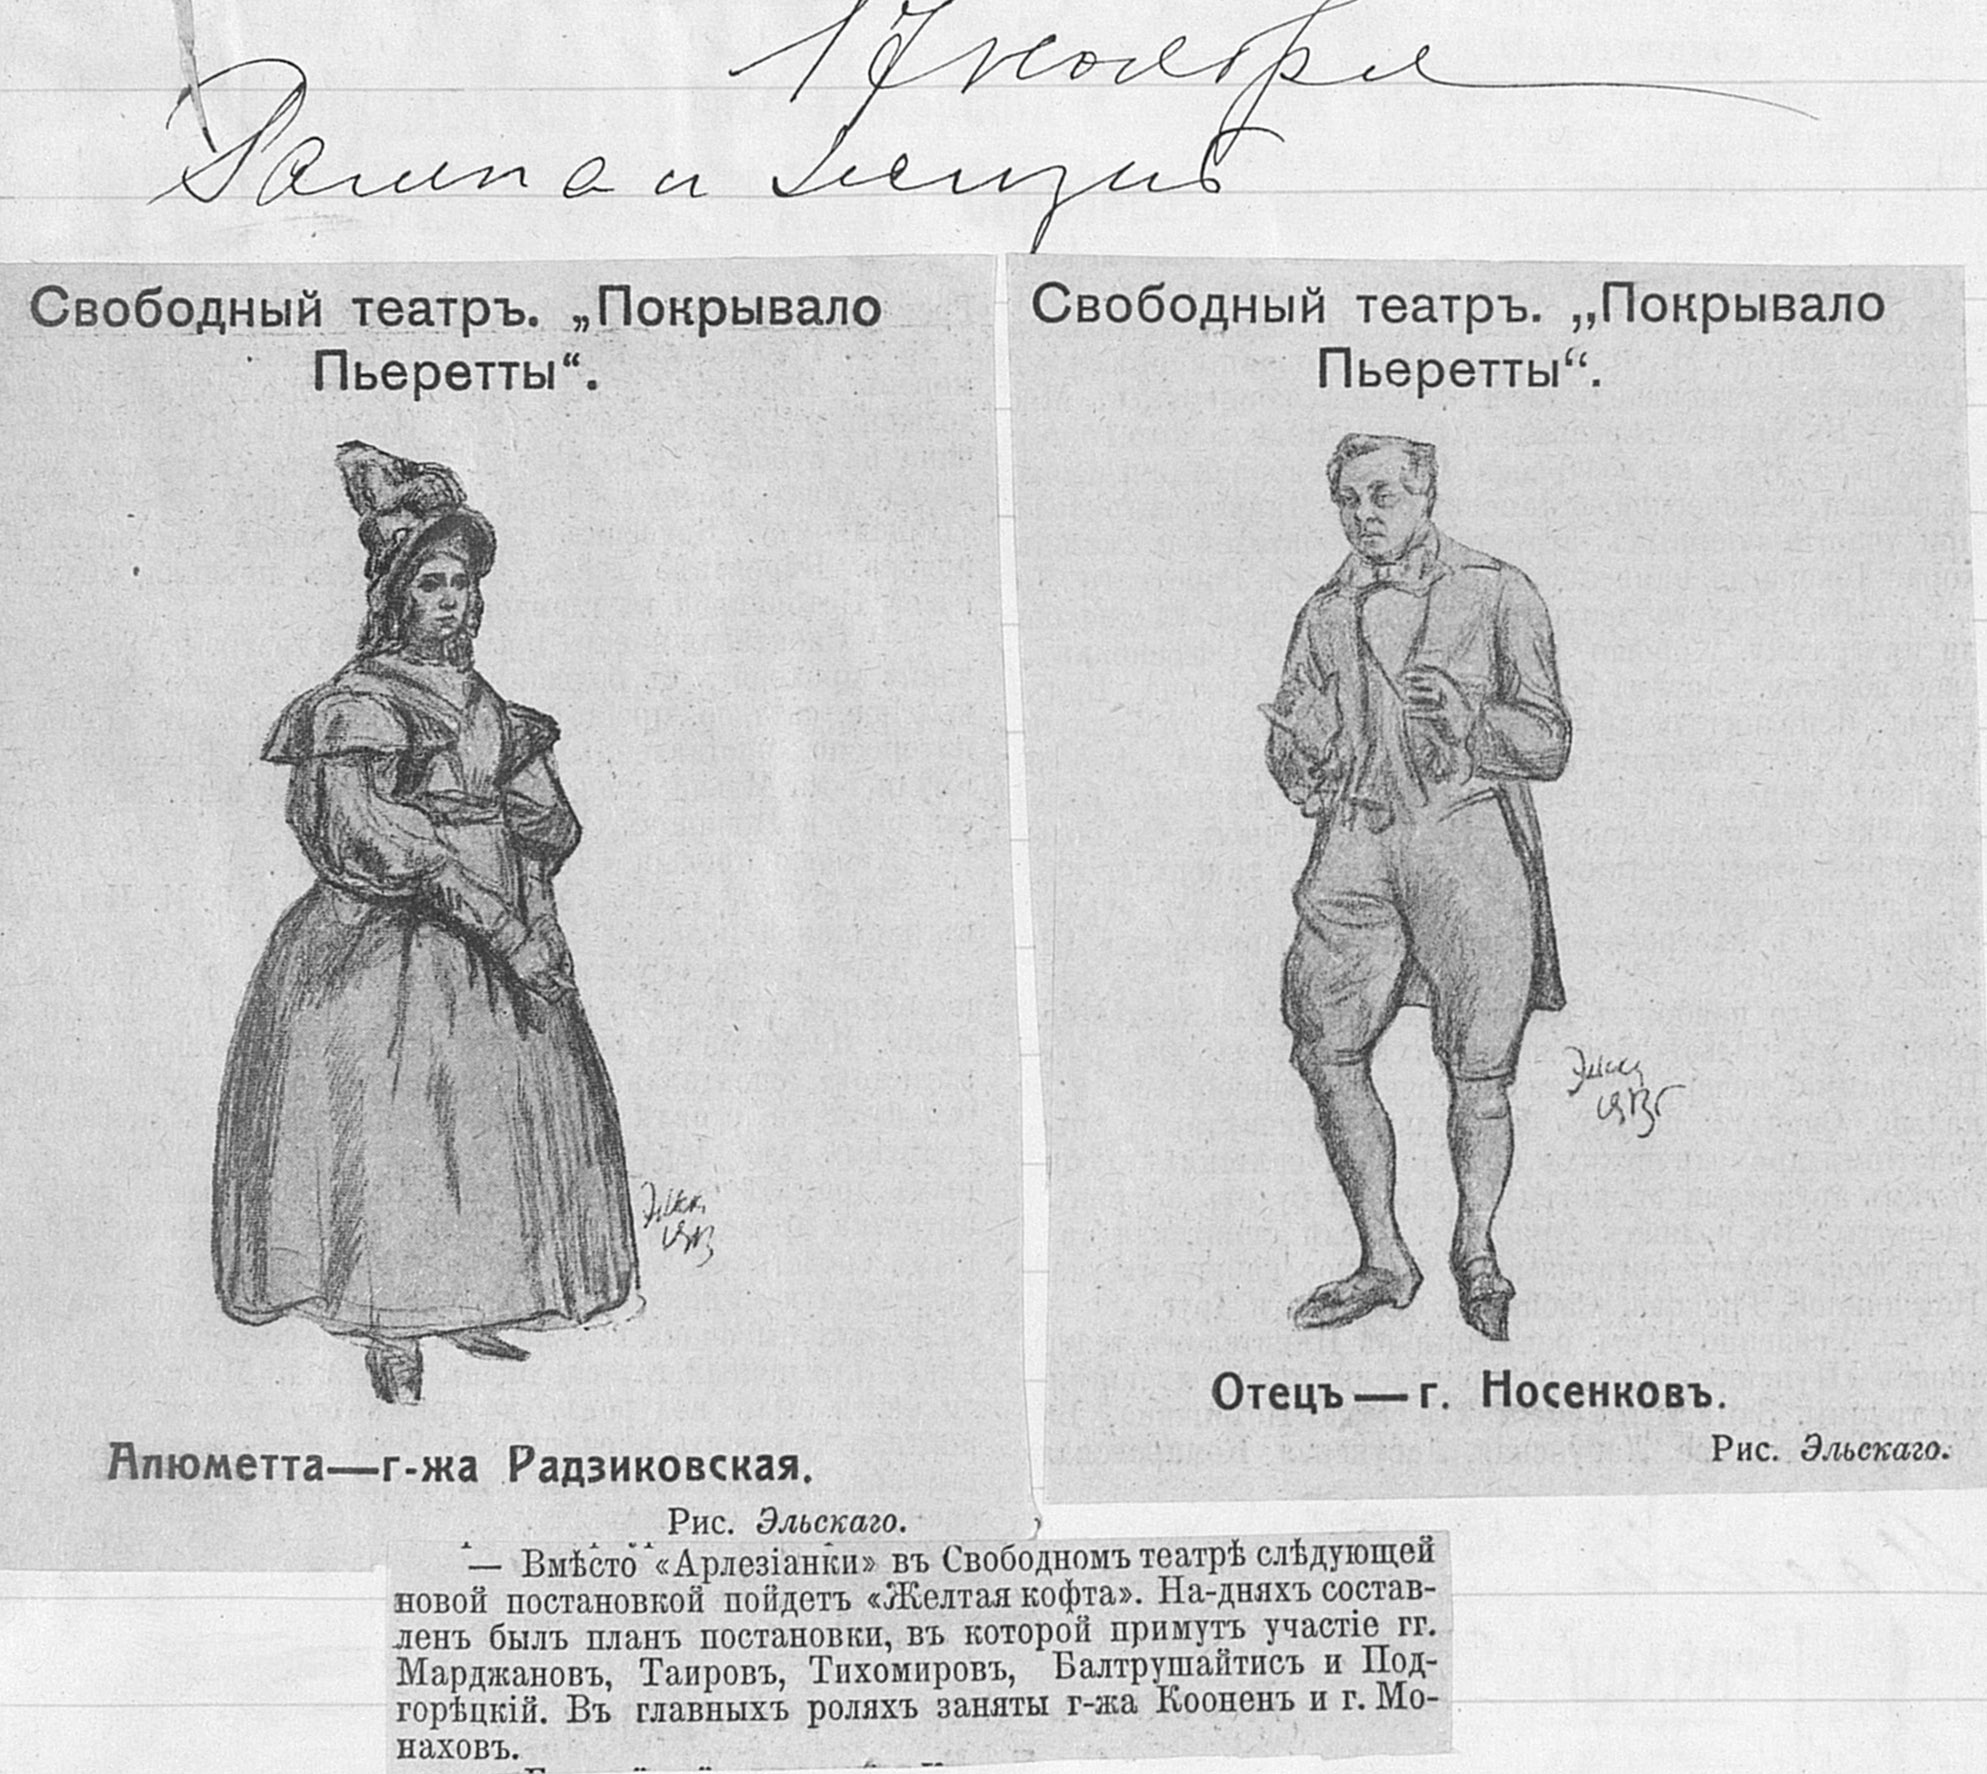 17 ноября
Рампа и жизнь
Свободный театръ. „Покрывало
Пьеретты“.
Эльск.
1913
Алюметта—г-жа Радзиковская.
Рис. Эльскаго.
Свободный театръ. „Покрывало
Пьеретты“.
1913 г
Отецъ — г. Носенковъ.
Рис. Эльскаго.
— Вмѣсто «Арлезіанки» въ Свободномъ театрѣ слѣдующей
новой постановкой пойдетъ «Желтая кофта». На-дняхъ состав-
ленъ былъ планъ постановки, въ которой примутъ участіе гг.
Марджановъ, Таировъ, Тихомировъ, Балтрушайтисъ и Под-
горѣцкій. Въ главныхъ роляхъ заняты г-жа Кооненъ и г. Мо-
наховъ.